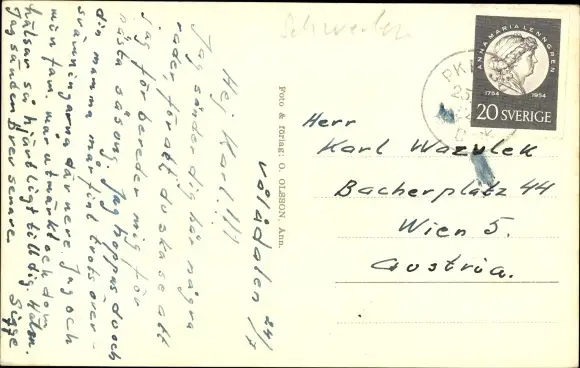 Schweden
ANNA MARIA LENNGREN
1754 1954
20 SVERIGE
PKP
25
Vålådalen 24/7
Hej Karl!!!
Jag sänder dig här några
rader, för att du ska se att
jag förbereder mig för
nästa säsong. Jag hoppas du och
din mamma mår fint trots över-
svämningarna där nere. Jag och
min fam. mår utmärkt och dom
hälsar så hjärtligt till dig. Hälsn.
Jag sänder brev senare Sigge
Foto & förlag: O. OLSSON Ånn.
Herr
Karl Wazulek
Bacherplatz 44
Wien 5.
Austria.